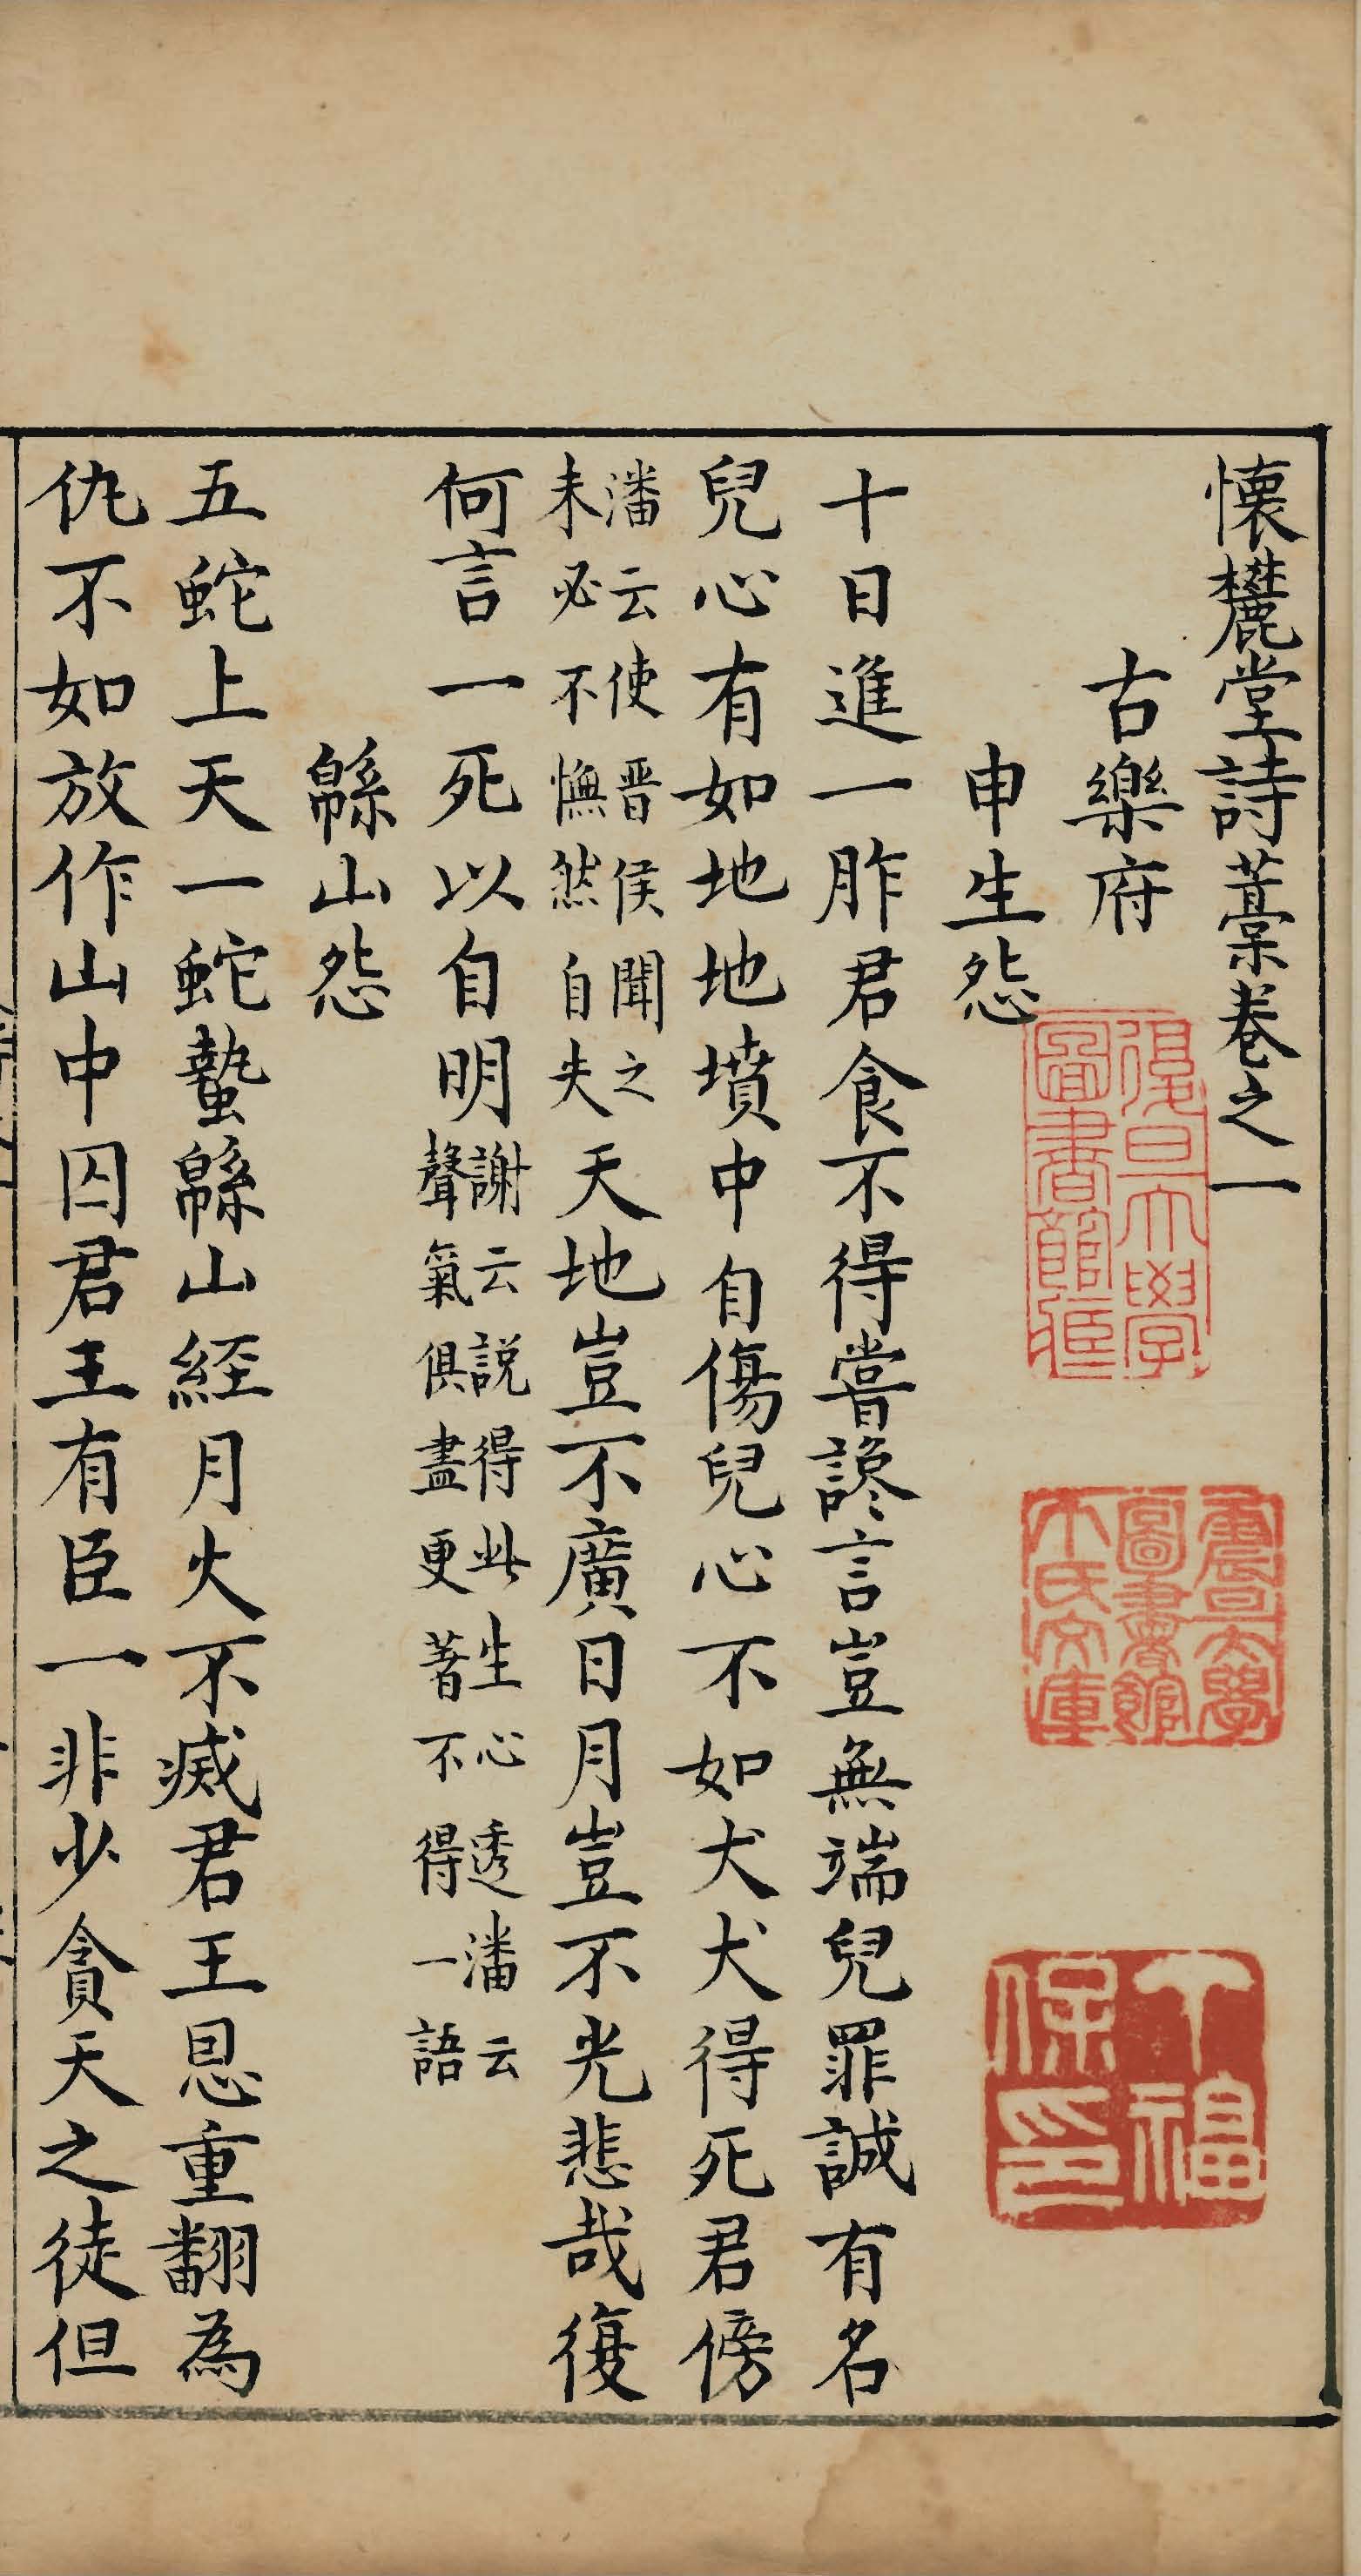 懷麓堂詩藁卷之一
古樂府
申生怨
十日進一胙君食不得嘗讒言豈無端兒罪誠有名
兒心有如地地墳中自傷兒心不如犬犬得死君傍
潘云使晋侯聞之
未必不憮然自失
天地豈不廣日月豈不光悲哉復
何言一死以自明
謝云説得此生心透潘云
聲氣俱盡更著不得一語
緜山怨
五蛇上天一蛇蟄緜山経月火不㓕君王恩重翻為
仇不如放作山中囚君王有臣一非少貪天之徒但
復旦大學
圖書館藏
震旦大學
圖書館
丁氏文庫
丁福
保印